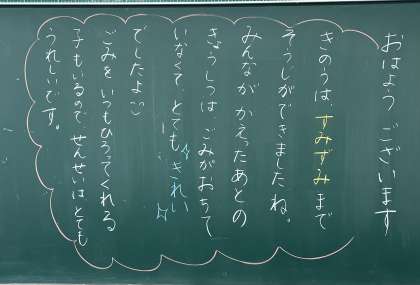 おはよう ございます
きのうは、すみずみまで
そうじができましたね。
みんなが かえったあとの
きょうしつは ごみがおちて
いなくて、とても きれい
でしたよ
ごみを いつもひろってくれる
子もいるので せんせいは とても
うれしいです。